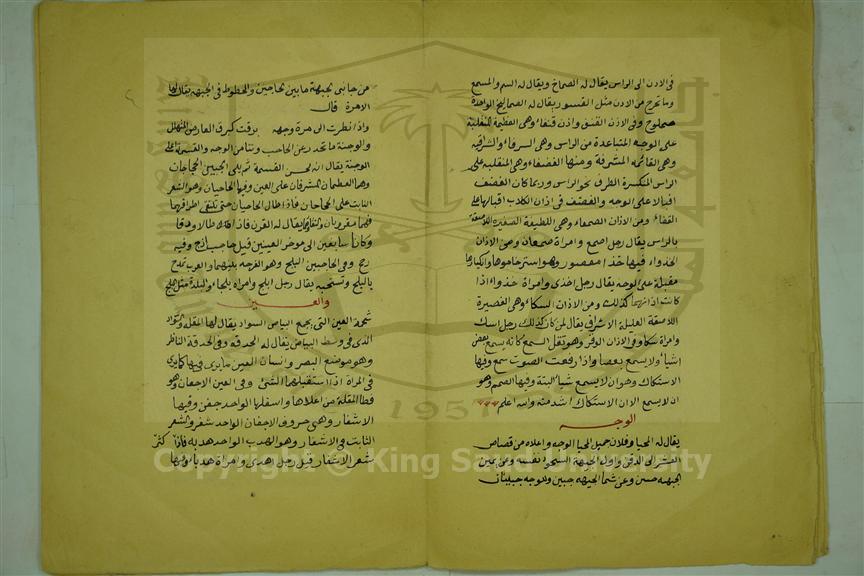 في الاذن الى الراس يقال له الصماخ ويقال له السم والمسمع
وما تخرج من الاذن مثل القسور يقال له الصماليخ الواحدة
صملوخ وفي الاذن القنف واذن قنفاء وهي العظيمة المنقلبة
على الوجه المتباعدة من الراس وهي السرفاء والشرافيه
وهي القائمة المشرفة ومنها الغضفاء وهي المنقلبه على
الراس المنكسرة الطرف نحو الراس وربما كان الغضف
اقبالا على الوجه والغضف في اذان الكلاب اقبالها على
القفاء ومن الاذان الصمعاء وهي اللطيفة الصغيرة اللاصقة
بالراس يقال رجل اصمع وامراة صمعاء ومن الاذان
الخذواء فيها خذا مقصور وهو استرخاءوها وانكسارها
مقبلة على الوجه يقال رجل اخذى وامراة خذواء اذا
كانت اذانهما كذلك ومن الاذان السكاء وهي القصيرة
اللاصقة القليلة الاشراف يقال لمن كان كذلك رجل اسك
وامراة سكاء وفي الاذان الوقر وهو ثقل السمع كانه يسمع بعض
اشياء ولا يسمع بعضا واذا رفعت الصوت سمع وفيها
الاستكاك وهو ان لا يسمع شيا البتة وفيها الصمم وهو
ان لا يسمع الا ان الاستكاك اشد منه والله اعلم
الوجه
يقال له المحيا وفلان جميل المحيا الوجه واعلاه من قصاص
الشعر الى الذقن واول الجبهة نفسه وعن يمين
الجبهه جبين وعن شمال الجبهه جبين وللوجه جبينان
من جانبى الجبهة ما بين الحاجبين والخطوط في الجبهه يقال لها
الاسرة قال
واذا نظرت الى اسرة وجهه برقت كبرق العارض المتهلل
والوجنة ما تحدر عن الحاجب ونتا من الوجه والقسمة على
الوجنة يقال انه لحسن القسمة ثم يلى الجبين الحجاجان
وهما العظمان المشرفان على العين وفيها الحاجبان وهو الشعر
النابت على الحجاجان فاذا طال الحاجبان حتى تلتقى اطرافهما
فهما مقرونان يقال له القرن فاذا طالا ودقا
وكانا سابغين الى موخر العينين قيل حاجب ازج وفيه
زجج وفي الحاجبين البلج وهو الفرجه بينهما والعرب تمدح
بالبلج وتستحبه يقال رجل ابلج وامراة بلجاء والبلدة مثل البلج
والعين
شحمة العين التى تجمع البياض السواد يقال لها المقلة والسواد
الذى في وسط البياض يقال له الحدقه وفي الحدقة الناظر
وهو موضع البصر وانسان العين ما يرى فيها كما يرى
في المراة اذا استقبلها الشئ وفي العين الاجفان وهو
غطا المقلة من اعلاها واسفلها الواحد جفن وفيها
الاشفار وهي حروف الاجفان الواحد شفر والشعر
النابت في الاشفار وهو الهدب الواحد هدبة فاذا كثر
شعر الاشفار قيل رجل اهدب وامراة هدباء وفيها
Copyright © King Saud University
1957